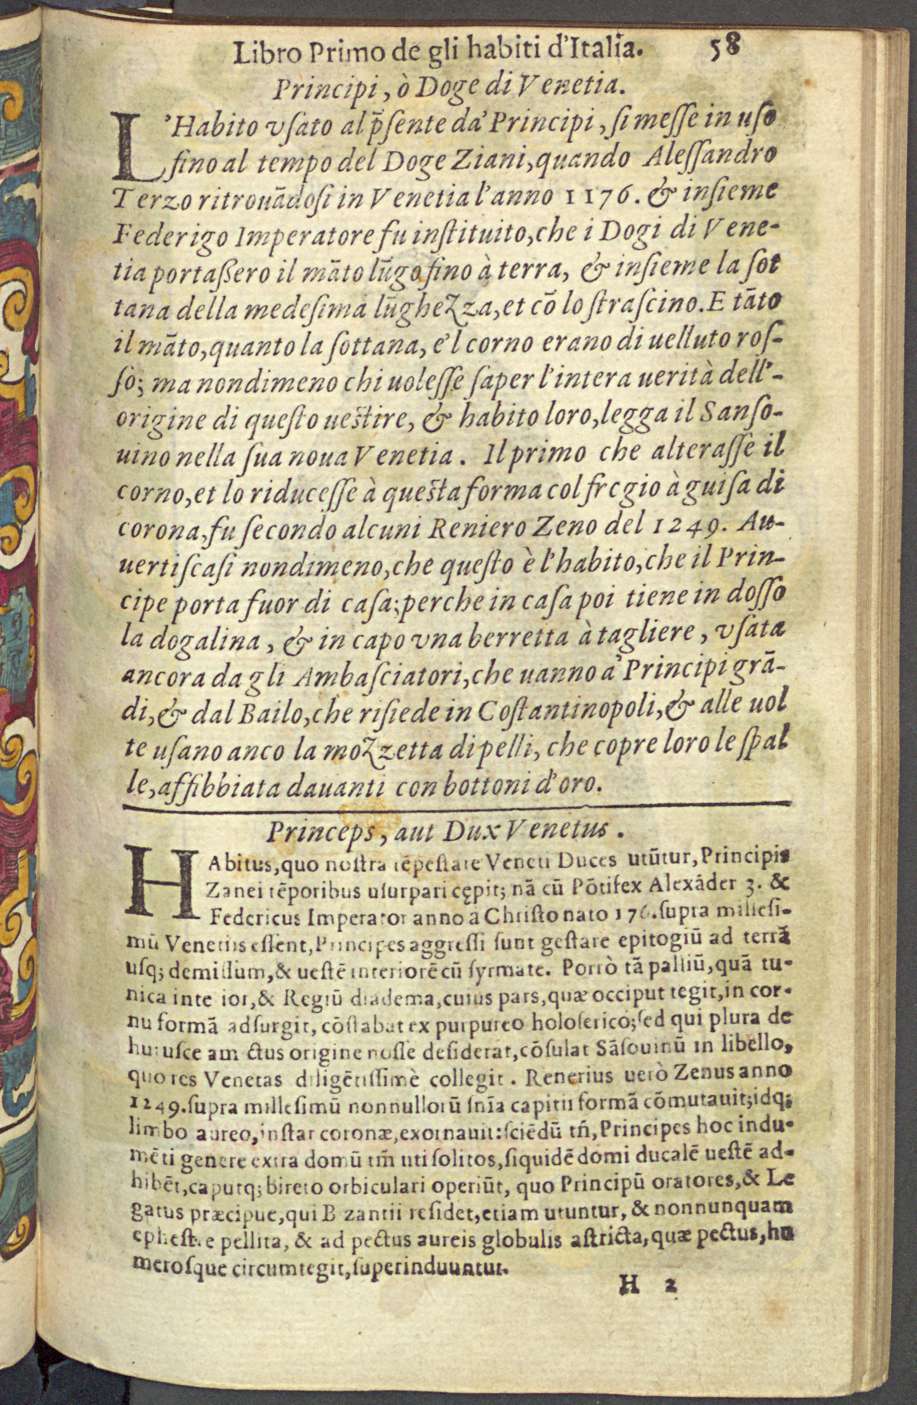 Libro Primo de gli habiti d'Italia. 58
Principi, ò Doge di Venetia.
L'Habito vſato al p̄ſente da' Principi, ſi meſſe in uſo
ſino al tempo del Doge Ziani, quando Aleſſandro
Terzo ritrouādoſi in Venetia l'anno 1176. & inſieme
Federigo Imperatore fu inſtituito, che i Dogi di Vene-
tia portaßero il māto lūgo ſino à terra, & inſieme la ſot
tana della medeſima lūghezza, et cō lo ſtraſcino. E tāto
il māto, quanto la ſottana, e'l corno erano di uelluto roſ-
ſo; ma nondimeno chi uoleſſe ſaper l'intera uerità dell'-
origine di queſto ueſtire, & habito loro, legga il Sanſo-
uino nella ſua noua Venetia. Il primo che alteraſſe il
corno, et lo riduceſſe à queſta forma col fregio à guiſa di
corona, fu ſecondo alcuni Reniero Zeno del 1249. Au-
uertiſcaſi nondimeno, che queſto è l'habito, che il Prin-
cipe porta fuor di caſa; perche in caſa poi tiene in doſſo
la dogalina, & in capo vna berretta à tagliere, vſata
ancora da gli Ambaſciatori, che uanno a' Principi grā-
di, & dal Bailo, che riſiede in Coſtantinopoli, & alle uol
te uſano anco la mozzetta di pelli, che copre loro le ſpal
le, affibbiata dauanti con bottoni d'oro.
Princeps, aut Dux Venetus.
HAbitus, quo noſtra tēpeſtate Veneti Duces utūtur, Principis
Zanei tēporibus uſurpari cępit; nā cū Pōtifex Alexāder 3. &
Federicus Imperator anno à Chriſto nato 176. ſupra milleſi-
mū Venetiis eſſent, Principes aggreſſi ſunt geſtare epitogiū ad terrā
uſq; demiſſum, & ueſtē interiorē cū ſyrmate. Porrò tā palliū, quā tu-
nica inte ior, & Regiū diadema, cuius pars, quæ occiput tegit, in cor-
nu formā adſurgit, cōſtabat ex purpureo holoſerico; ſed qui plura de
huiuſce am ctus origine noſſe deſiderat, cōſulat Sāſouinū in libello,
quo res Venetas diligētiſſimè collegit. Renerius uerò Zenus anno
1249. ſupra milleſimū nonnullorū ſnīa capitii formā cōmutauit; idq;
limbo aureo, inſtar coronæ, exornauit: ſciēdū tn̄, Principes hoc indu-
mēti genere extra domū tm̄ uti ſolitos, ſiquidē domi ducalē ueſtē ad-
hibēt, caputq; bireto orbiculari operiūt, quo Principū oratores, & Le
gatus præcipue, qui B zantii reſidet, etiam utuntur, & nonnunquam
epheſt.e pellita, & ad pectus aureis globulis aſtricta, quæ pectus, hu
meroſque circumtegit, ſuperinduuntur.
H 2